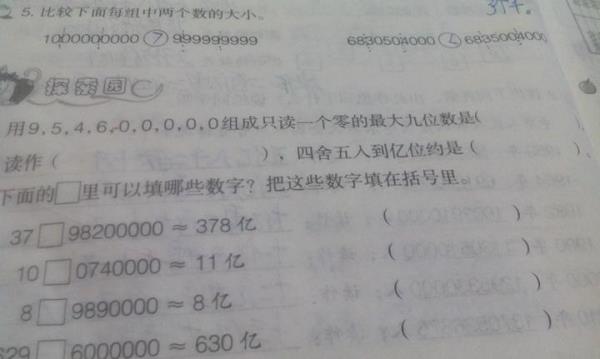 5. 比较下面每组中两个数的大小。
1000000000 > 999999999 6830504000 < 683500400
探索园
用9,5,4,6,0,0,0,0,0组成只读一个零的最大九位数是( ),
读作( ),四舍五入到亿位约是( )。
下面的□里可以填哪些数字?把这些数字填在括号里。
37□98200000≈378亿 ( )
10□0740000≈11亿 ( )
8□9890000≈8亿 ( )
629□6000000≈630亿 ( )